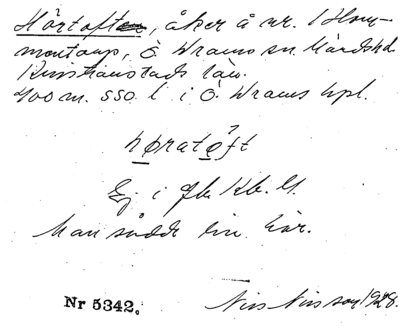 Hörtoften, åker å nr. 1 Hom-
mentorp, Ö Wrams sn. Gärds hd
Kristianstads län.
400 m. SSO l. i Ö. Wrams hpl.
høratoft
Ej i Jb. Kb. U.
Man sådde lin här.
Nr 5342.
Nils Nilsson 1928.